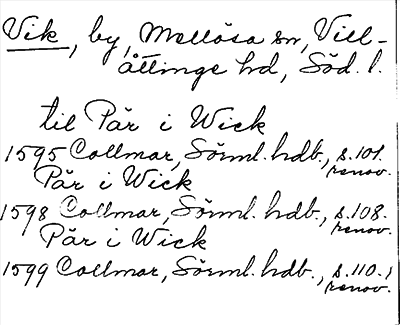 Vik, by, Mellösa sn, Vill-
åttinge hd, Söd. l.
til Pär i Wick
1595 Collmar, Sörml. hdb., s. 101.
renov.
Pär i Wick
1598 Collmar, Sörml. hdb., s. 108.
renov.
Pär i Wick
1599 Collmar, Sörml. hdb., s. 110.
renov.